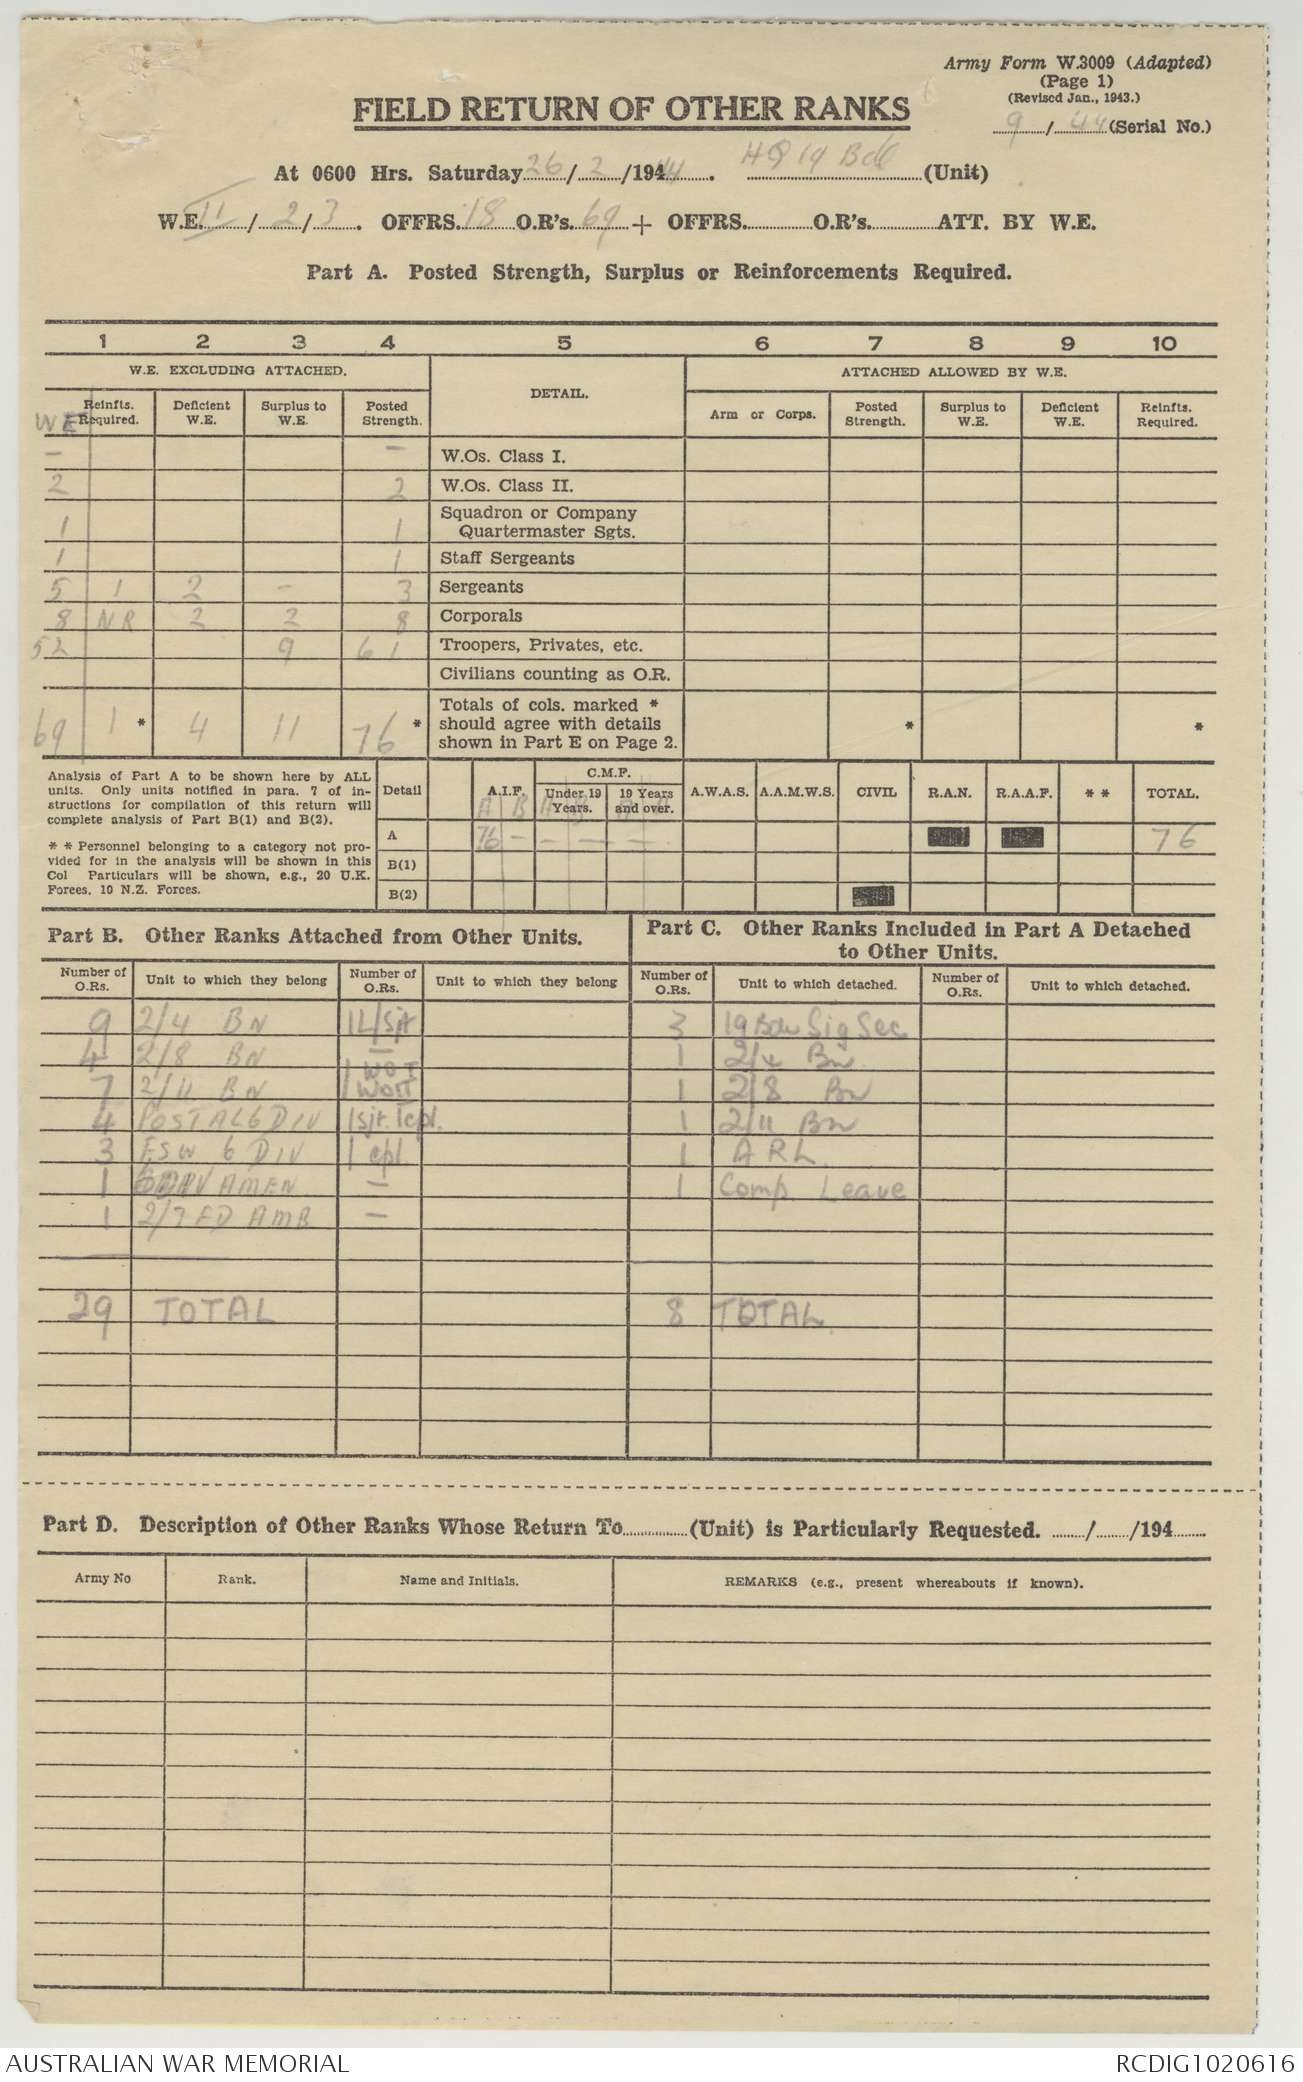 Army Form W.3009 (Adapted)
(Page 1)
(Revised Jan., 1943.)
9 / 44 (Serial No.)
FIELD RETURN OF OTHER RANKS
At 0600 Hrs. Saturday 26 / 2 / 1944. HQ 19 Bde (Unit)
W.E. II / 2 / 3. OFFRS. 18 O.R's. 69 + OFFRS. O.R's. ATT. BY W.E.
Part A. Posted Strength, Surplus or Reinforcements Required.
1 2 3 4 5 6 7 8 9 10
W.E. EXCLUDING ATTACHED. DETAIL. ATTACHED ALLOWED BY W.E.
WE Reinfts. Required. Deficient W.E. Surplus to W.E. Posted Strength. Arm or Corps. Posted Strength. Surplus to W.E. Deficient W.E. Reinfts. Required.
- - W.Os. Class I.
2 2 W.Os. Class II.
1 1 Squadron or Company Quartermaster Sgts.
1 1 Staff Sergeants
5 1 2 - 3 Sergeants
8 NR 2 2 8 Corporals
52 9 61 Troopers, Privates, etc.
Civilians counting as O.R.
69 1 * 4 11 76 * Totals of cols. marked * should agree with details shown in Part E on Page 2. * *
Analysis of Part A to be shown here by ALL
units. Only units notified in para. 7 of in-
structions for compilation of this return will
complete analysis of Part B(1) and B(2).
* * Personnel belonging to a category not pro-
vided for in the analysis will be shown in this
Col Particulars will be shown, e.g., 20 U.K.
Forces, 10 N.Z. Forces.
Detail A.I.F. C.M.F. Under 19 Years. 19 Years and over. A.W.A.S. A.A.M.W.S. CIVIL R.A.N. R.A.A.F. * * TOTAL.
A B A B A B
A 76 - - - - 76
B(1)
B(2)
Part B. Other Ranks Attached from Other Units.
Part C. Other Ranks Included in Part A Detached
to Other Units.
Number of O.Rs. Unit to which they belong Number of O.Rs. Unit to which they belong Number of O.Rs. Unit to which detached. Number of O.Rs. Unit to which detached.
9 2/4 BN 1 L/Sjt 3 19 Bde Sig Sec
4 2/8 BN - 1 2/4 Bn
7 2/11 BN 1 WO I 1 WOII 1 2/8 Bn
4 POSTAL 6 DIV 1 sjt. 1 cpl. 1 2/11 Bn
3 FSW 6 DIV 1 cpl. 1 A R L.
1 AMEN - 1 Comp Leave
1 2/7 FD AMB -
29 TOTAL 8 TOTAL.
Part D. Description of Other Ranks Whose Return To (Unit) is Particularly Requested. / /194
Army No Rank. Name and Initials. REMARKS (e.g., present whereabouts if known).
AUSTRALIAN WAR MEMORIAL RCDIG1020616